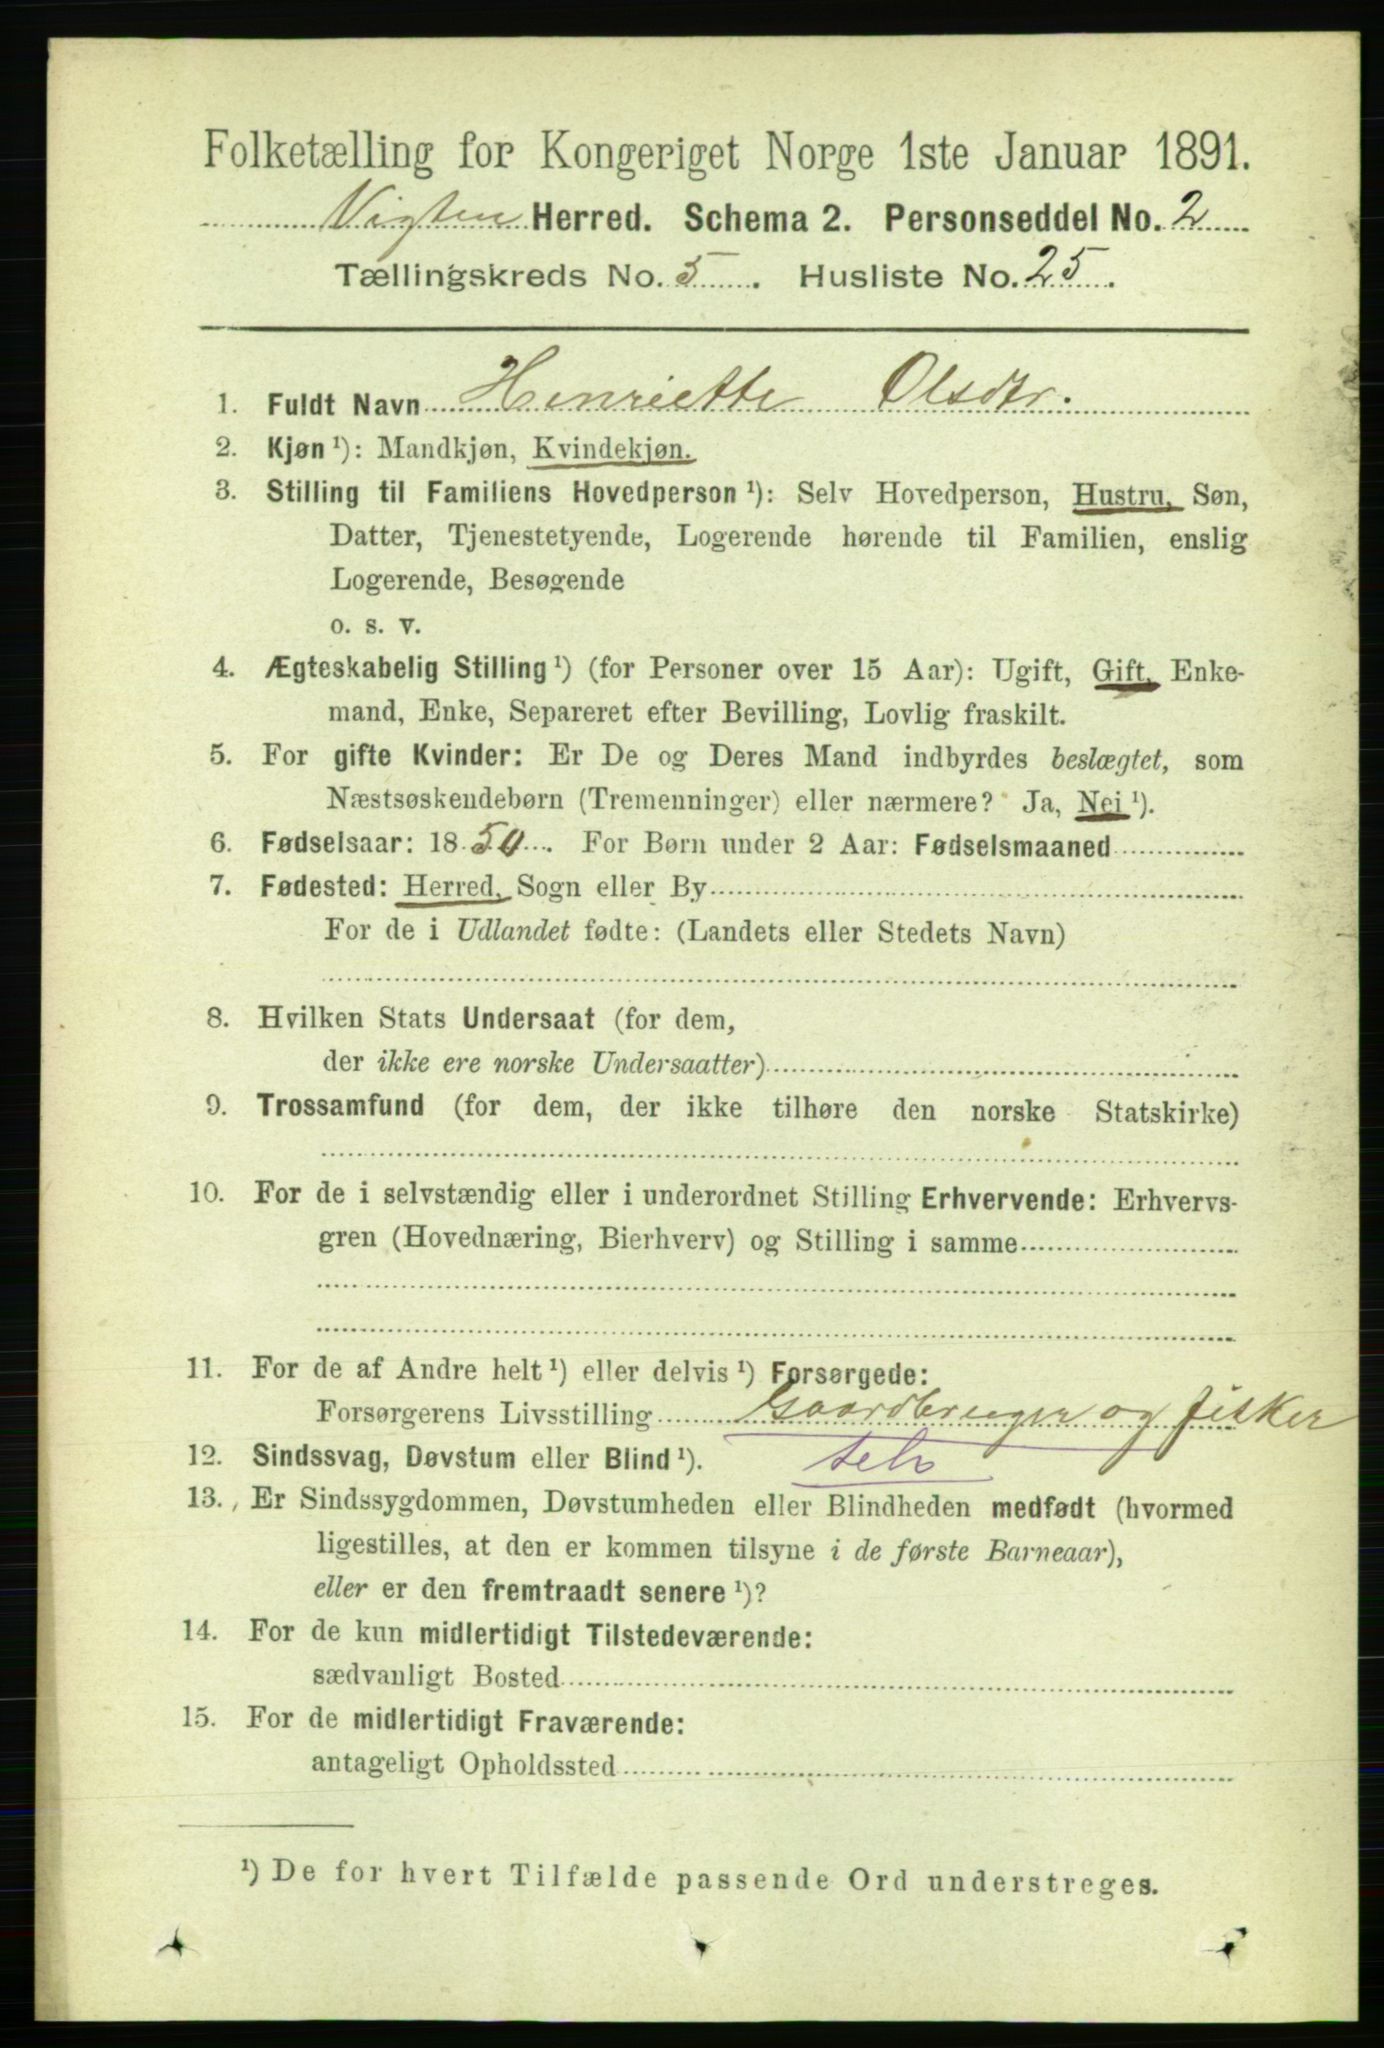 Folketælling for Kongeriget Norge 1ste Januar 1891.
Vigten Herred. Schema 2. Personseddel No. 2
Tællingskreds No. 5. Husliste No. 25.
1. Fuldt Navn Henriette Olsdtr.
2. Kjøn ¹): Mandkjøn, Kvindekjøn.
3. Stilling til Familiens Hovedperson ¹): Selv Hovedperson, Hustru, Søn,
Datter, Tjenestetyende, Logerende hørende til Familien, enslig
Logerende, Besøgende
o. s. v.
4. Ægteskabelig Stilling ¹) (for Personer over 15 Aar): Ugift, Gift, Enke-
mand, Enke, Separeret efter Bevilling, Lovlig fraskilt.
5. For gifte Kvinder: Er De og Deres Mand indbyrdes beslægtet, som
Næstsøskendebørn (Tremenninger) eller nærmere? Ja, Nei ¹).
6. Fødselsaar: 1850. For Børn under 2 Aar: Fødselsmaaned
7. Fødested: Herred, Sogn eller By
For de i Udlandet fødte: (Landets eller Stedets Navn)
8. Hvilken Stats Undersaat (for dem,
der ikke ere norske Undersaatter)
9. Trossamfund (for dem, der ikke tilhøre den norske Statskirke)
10. For de i selvstændig eller i underordnet Stilling Erhvervende: Erhvervs-
gren (Hovednæring, Bierhverv) og Stilling i samme
11. For de af Andre helt ¹) eller delvis ¹) Forsørgede:
Forsørgerens Livsstilling Gaardbruger og fisker
12. Sindssvag, Døvstum eller Blind ¹). selv
13. Er Sindssygdommen, Døvstumheden eller Blindheden medfødt (hvormed
ligestilles, at den er kommen tilsyne i de første Barneaar),
eller er den fremtraadt senere ¹)?
14. For de kun midlertidigt Tilstedeværende:
sædvanligt Bosted
15. For de midlertidigt Fraværende:
antageligt Opholdssted
¹) De for hvert Tilfælde passende Ord understreges.